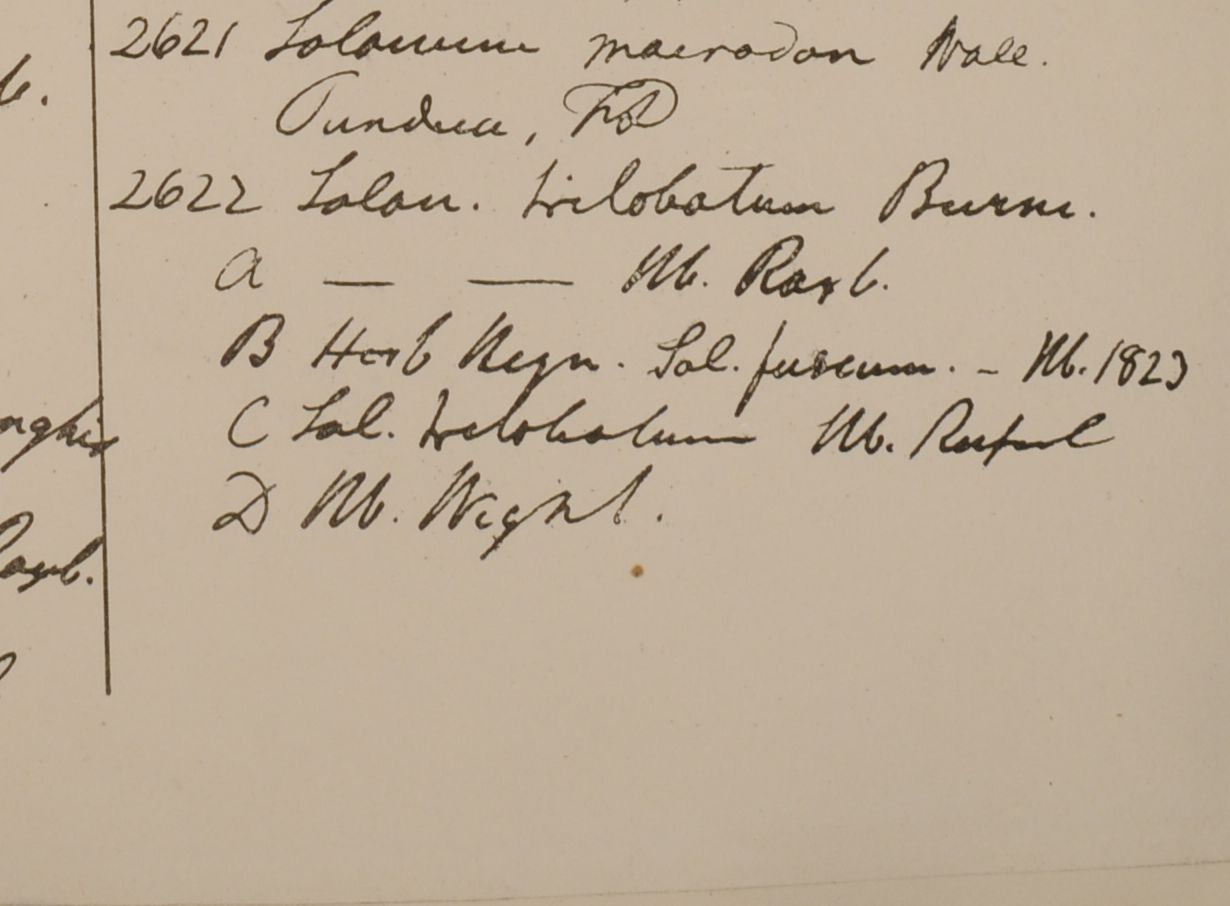 b.
nghis
Roxb.
2621 Solanum macrodon Wall.
Pundua, FD
2622 Solan. trilobatum Burm.
A — — Hb. Roxb.
B Herb Heyn. Sol. fuscum. - Hb. 1823
C Sol. trilobatum Hb. Russel
D Hb. Wight.